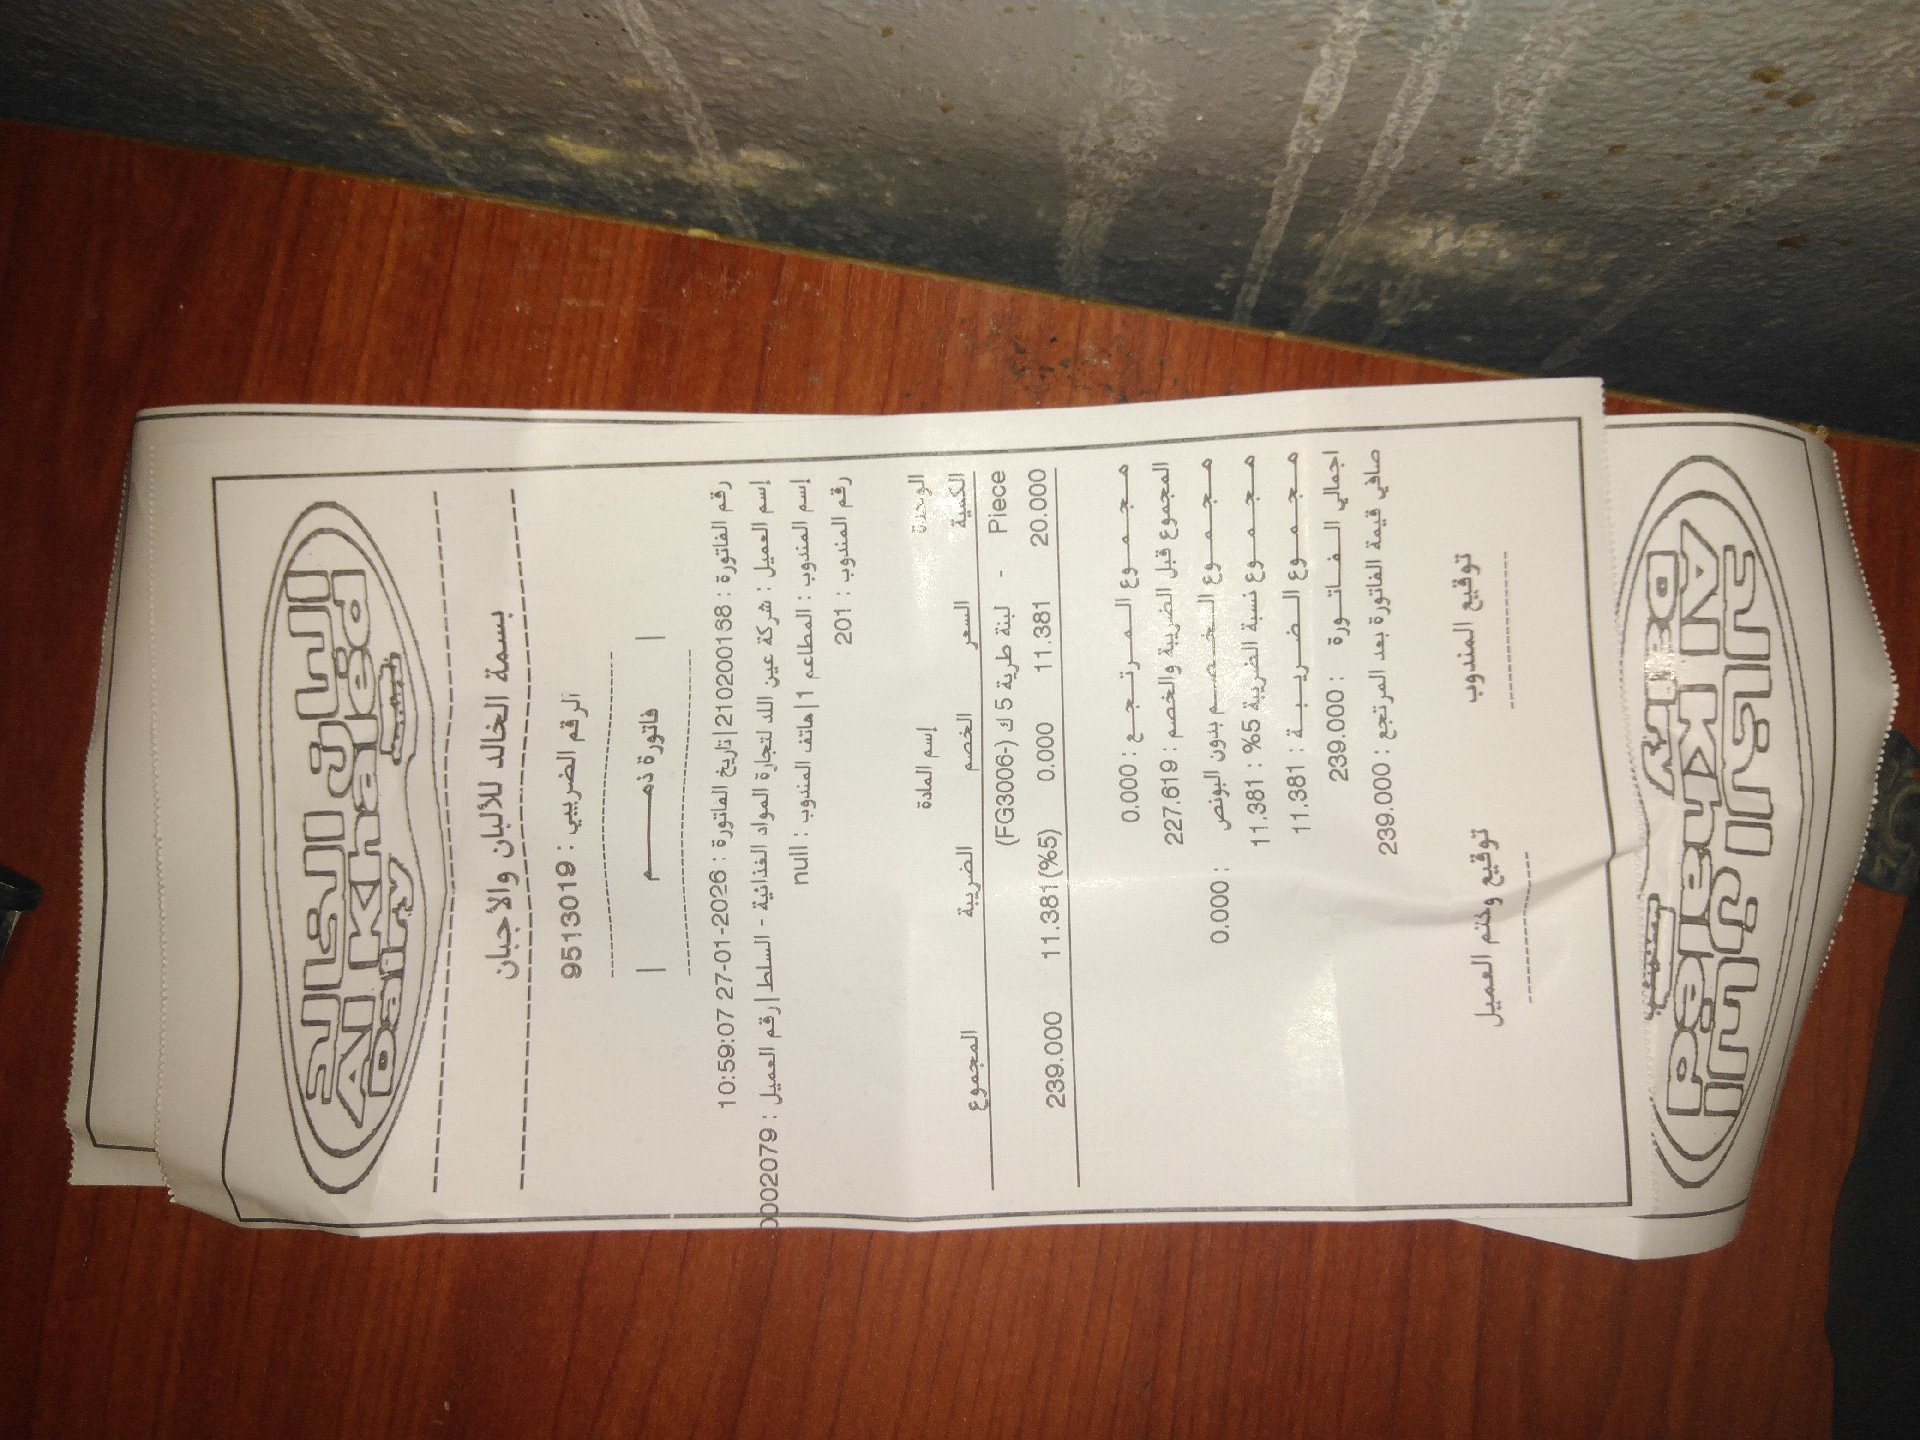 ألبان الخالد
Al Khaled
Dairy
بسمة الخالد للألبان والاجبان
الرقم الضريبي : 9513019
| فاتورة ذمـــــم |
رقم الفاتورة : 210200138|تاريخ الفاتورة : 2026-01-27 10:59:07
إسم العميل : شركة عين اللد لتجارة المواد الغذائية - السلط|رقم العميل : 0002079
إسم المندوب : المطاعم 1|هاتف المندوب : null
رقم المندوب : 201
الوحدة إسم المادة
الكمية السعر الخصم الضريبة المجموع
Piece - لبنة طرية 5 ك (-FG3006)
20.000 11.381 0.000 11.381(%5) 239.000
مـجـمـوع الـمـرتـجـع : 0.000
المجموع قبل الضريبة والخصم : 227.619
مـجـمـوع الـخـصـم بدون البونص : 0.000
مـجـمـوع نسبة الضريبة 5% : 11.381
مـجـمـوع الـضـريـبـة : 11.381
اجمالي الـفـاتـورة : 239.000
صافي قيمة الفاتورة بعد المرتجع : 239.000
توقيع المندوب توقيع وختم العميل
ألبان الخالد
Al Khaled
Dairy